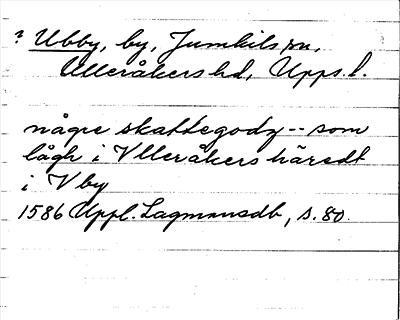 ? Ubby, by, Jumkils sn,
Ulleråkers hd, Upps. l.
någre skattegodz -- som
lågh i Vlleråkers häredt
i Vby
1586 Uppl. Lagmansdb, s. 80.